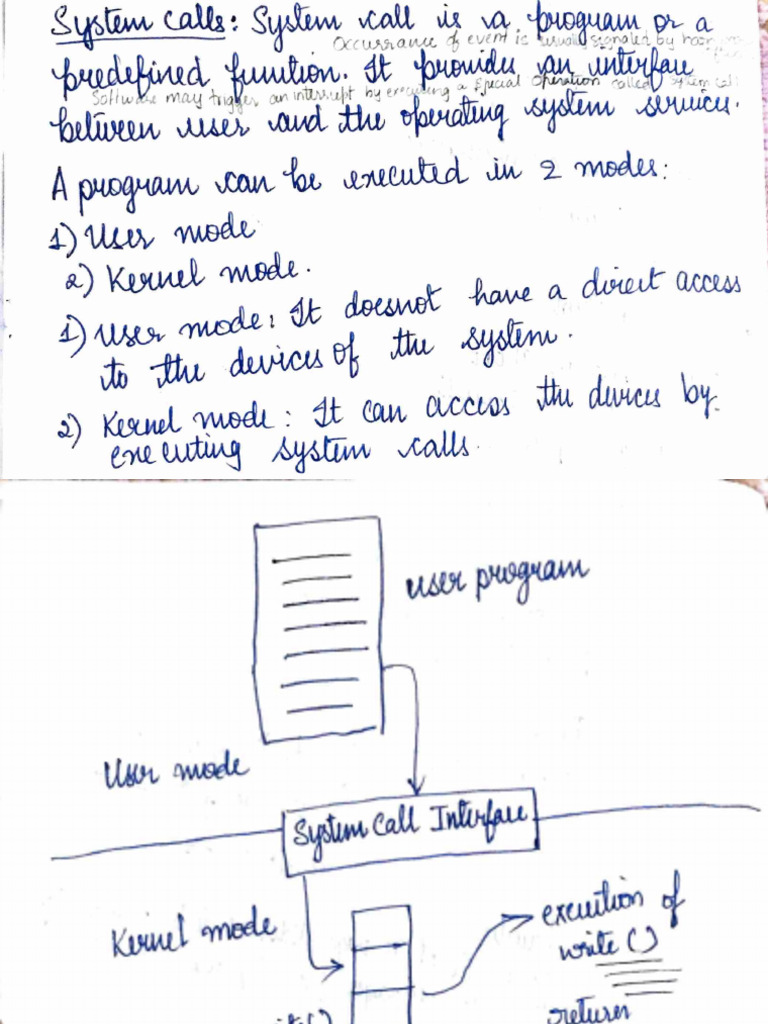 System Calls: System call is a program or a
Occurrance of event is usually signaled by
predefined function. It provides an interface
Software may trigger an interrupt by executing a special operation called system call
between user and the operating system services.
A program can be executed in 2 modes:
1) User mode
2) Kernel mode.
1) User mode: It doesnot have a direct access
to the devices of the system.
2) Kernel mode: It can access the devices by
executing system calls.
user program
User mode
System Call Interface
Kernel mode
execution of
write ()
return